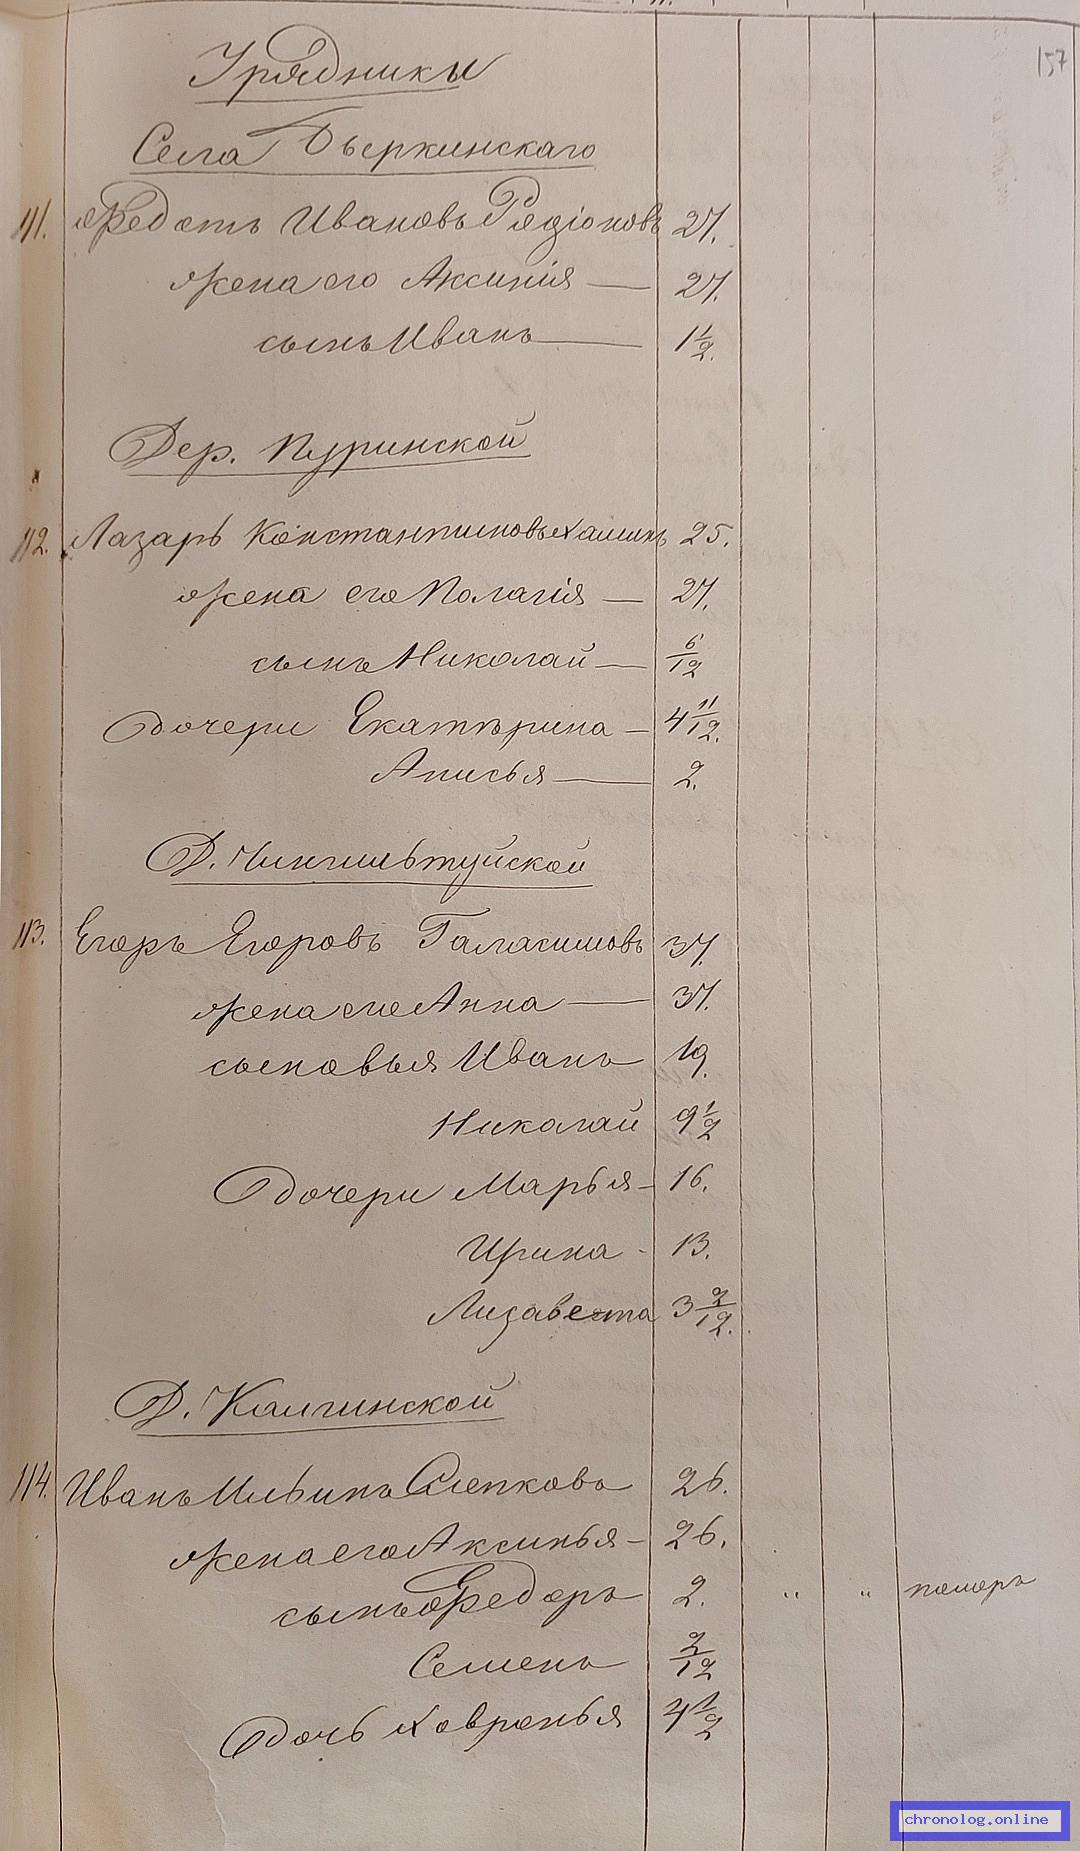 157
Урядники
Села Быркинскаго
111. Федотъ Ивановъ Родіоновъ 27.
жена его Аксинія — 27.
сынъ Иванъ — 1 1/2.
Дер. Пуринской
112. Лазарь Константиновъ Хаминъ 25.
жена его Полагія — 27.
сынъ Николай — 6/12
дочери Екатѣрина — 4 11/12.
Анисья — 2.
Д. Чингильтуйской
113. Егоръ Егоровъ Галасимовъ 37.
жена его Анна — 37.
сыновья Иванъ 19.
Николай 9 1/2
дочери Марья — 16.
Ирина - 13.
Лизавета 3 2/12.
Д. Калгинской
114. Иванъ Ильинъ Слепковъ 26.
жена его Аксинья — 26.
сынъ Федоръ 2. " " померъ
Семенъ 2/12
дочь Хавронья 4 1/2
chronolog.online